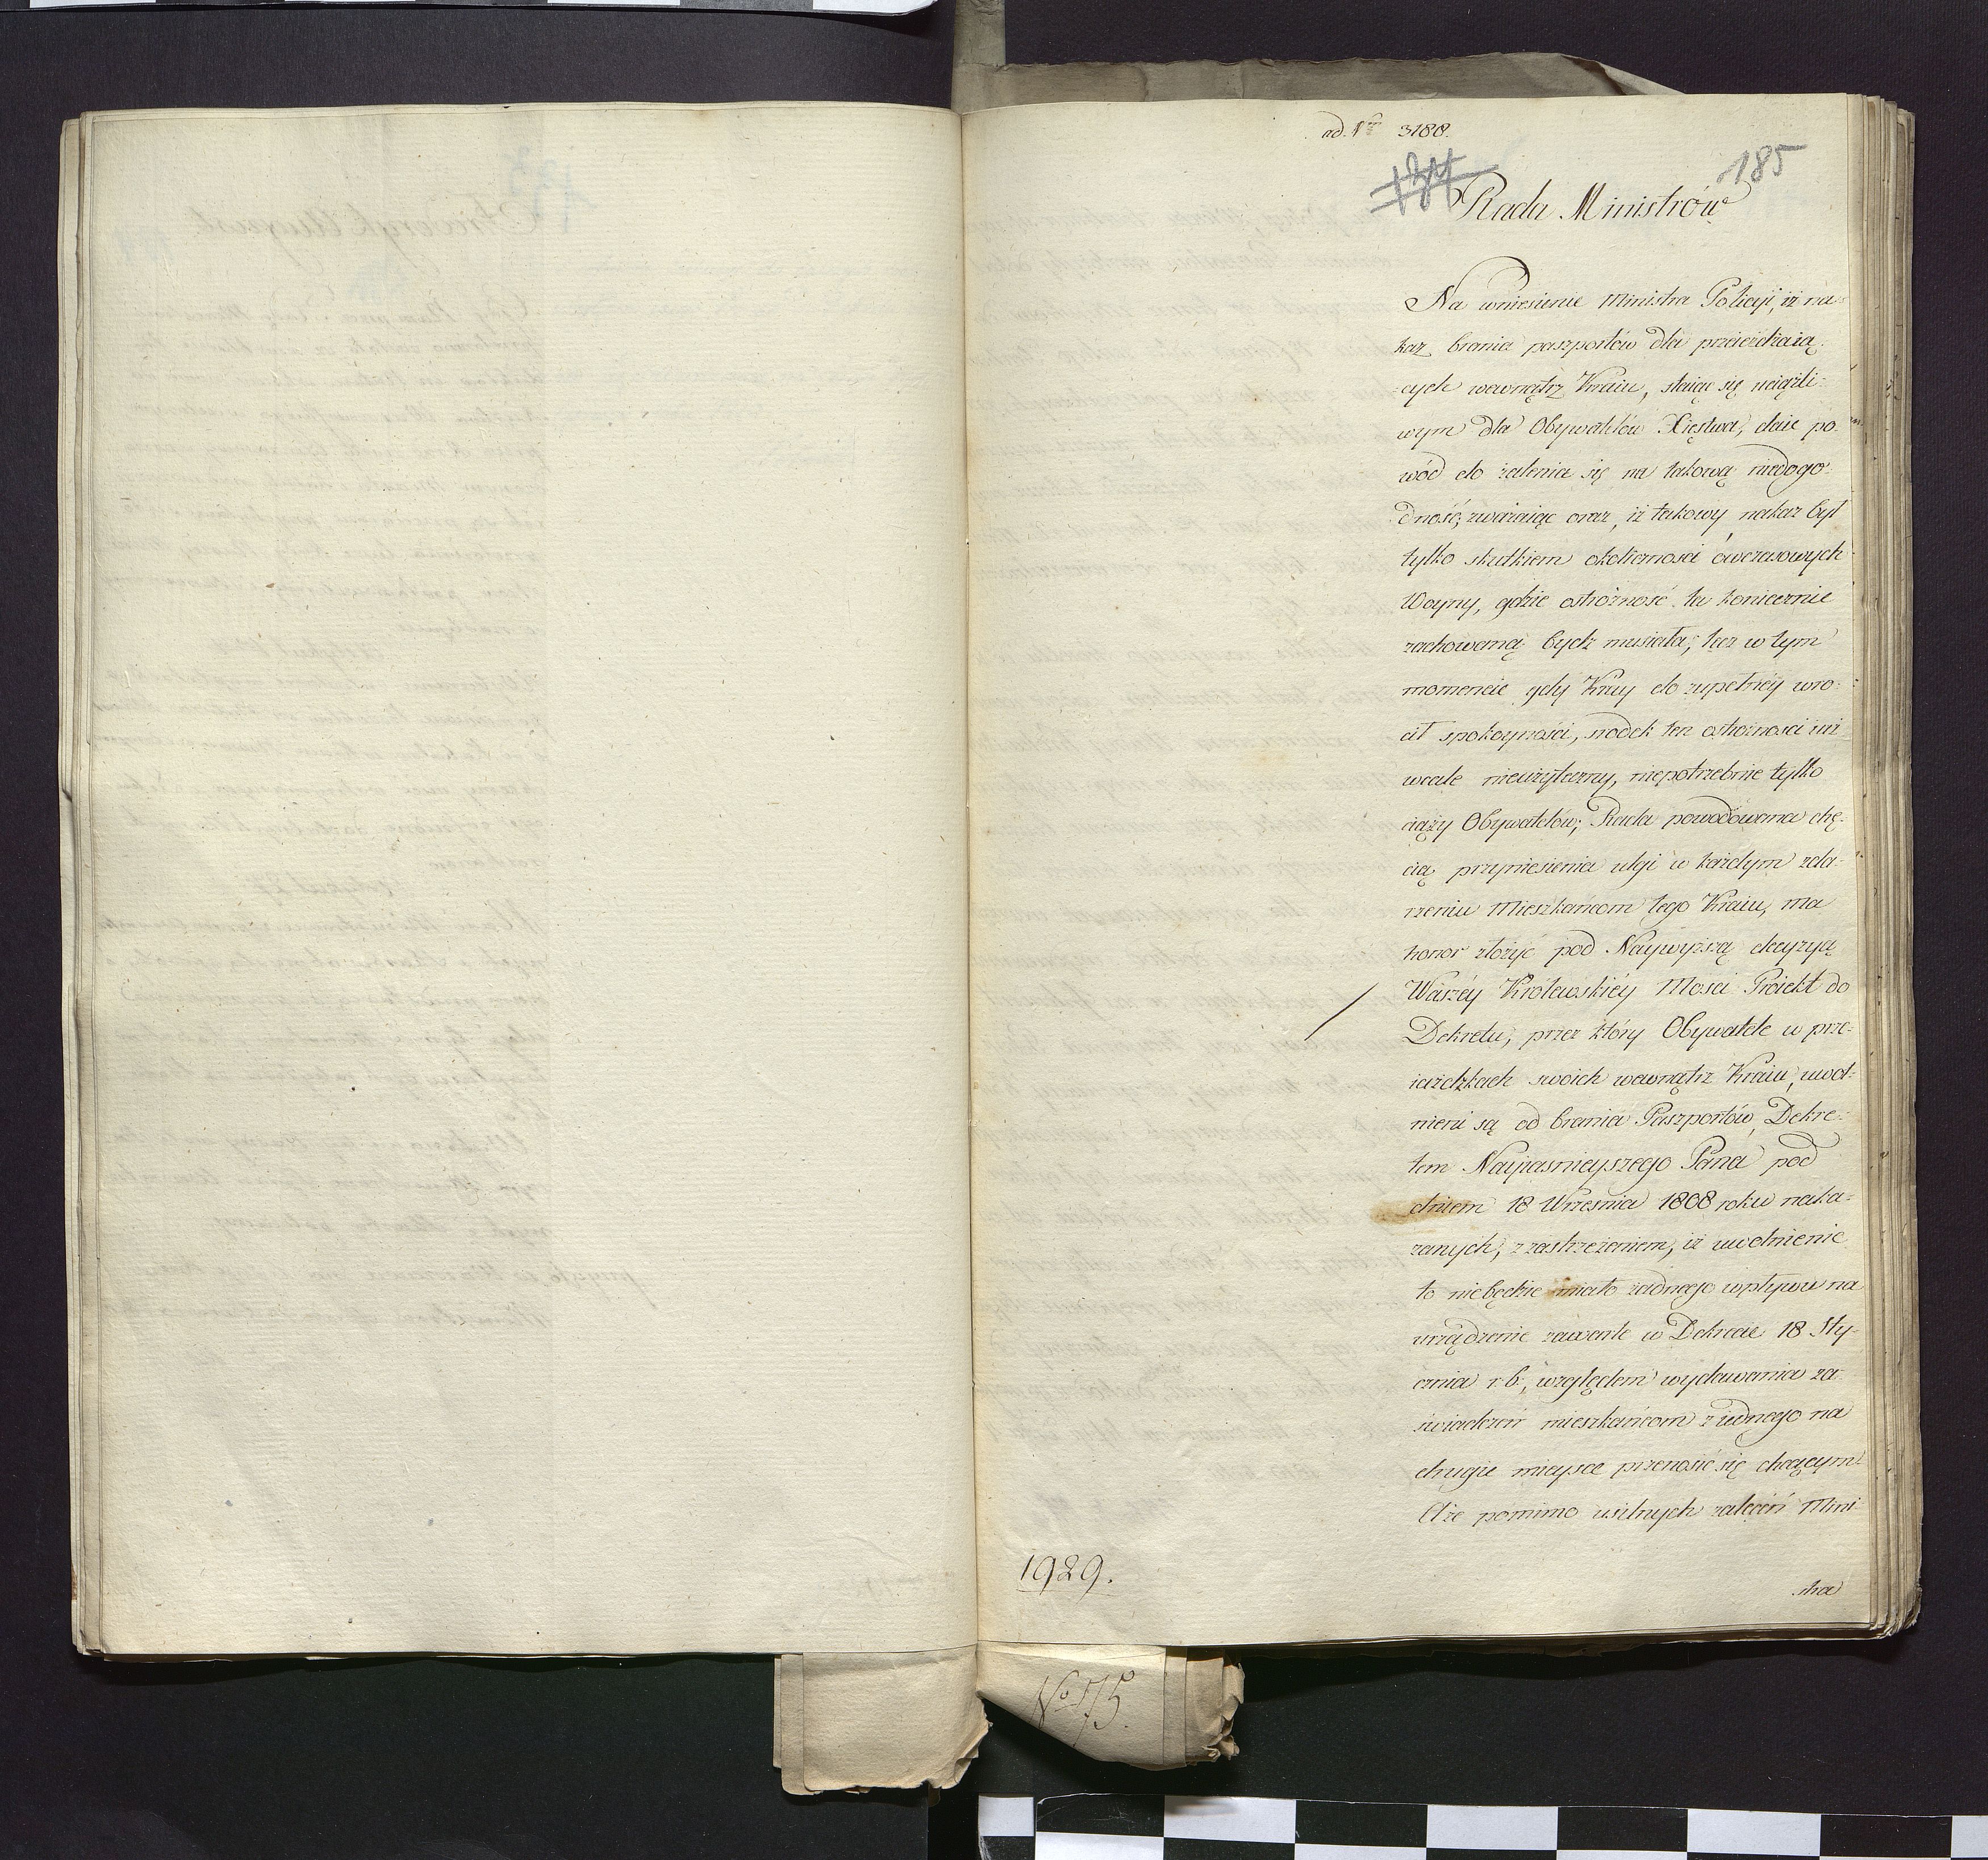 ad. Nrm 3188.
185
Rada Ministrów
Na wniesienie Ministra Policyi, iż na=
kaz brania paszportów dla przeieżdżaią=
=cych wewnątrz Kraiu, staiąc się uciążli=
wym dla Obywatelów Xięstwa, daie po=
wód do żalenia się na takową niedogo=
dność; zważaiąc oraz, iż takowy nakaz był
tylko skutkiem okoliczności ówczasowych
Woyny, gdzie ostrożność ta koniecznie
zachowaną bydź musiała; lecz w tym
momencie gdy Kray do zupełnéy wró=
cił spokoyności, środek ten ostrożności iuż
wcale nieużyteczny, niepotrzebnie tylko
ciąży Obywatelów; Rada powodowana chę=
cią przyniesienia ulgi w każdym zda=
rzeniu Mieszkańcom tego Kraiu, ma
honor złożyć pod Naywyższą decyzyą
Waszéy Królewskiéy Mości Proiekt do
Dekretu, przez który Obywatele w prze=
iażdżkach swoich wewnątrz Kraiu, uwol=
nieni są od brania Paszportów, Dekre=
tem Nayiaśnieyszego Pana pod
dniem 18 Września 1808 roku naka=
zanych, z zastrzeżeniem, iż uwolnienie
to niebędzie miało żadnego wpływu na
urządzenie zawarte w Dekrecie 18 Sty=
cznia r. b., względem wydawania za=
świadczeń mieszkańcom z iednego na
drugie mieysce przenosić się chcącym.
A że pomimo usilnych zaleceń Mini=
stra
1929.
No 175.